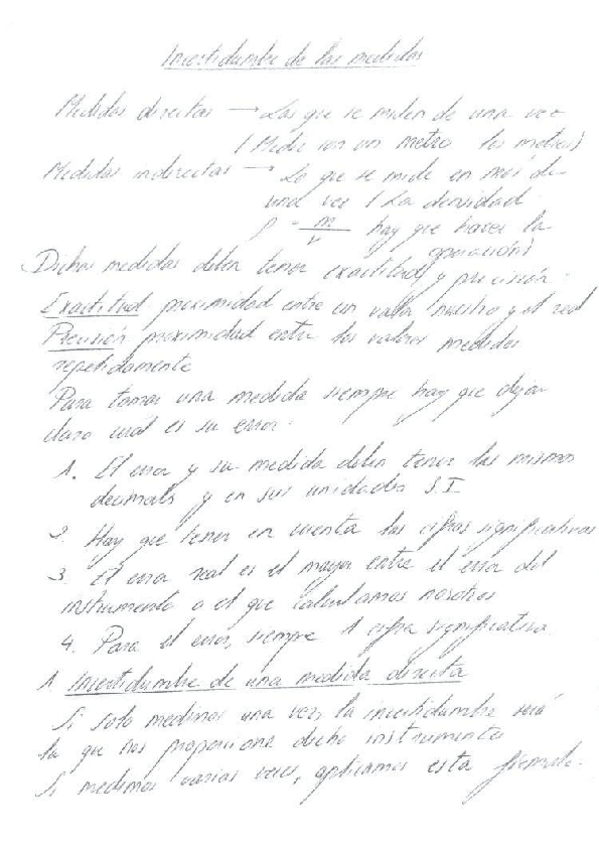 Incertidumbre de las medidas
Medidas directas → Las que se miden de una vez
(Medir con un metro los metros)
Medidas indirectas → Lo que se mide en más de
una vez (La densidad
ρ = m/v hay que hacer la
operación)
Dichas medidas deben tener exactitud y precisión.
Exactitud: proximidad entre un valor nuestro y el real
Precisión proximidad entre los valores medidos
repetidamente
Para tomar una medida siempre hay que dejar
claro cuál es su error.
1. El error y su medida deben tener los mismos
decimales y en sus unidades S.I
2. Hay que tener en cuenta las cifras significativas
3. El error real es el mayor entre el error del
instrumento o el que calculamos nosotros
4. Para el error, siempre 1 cifra significativa.
1. Incertidumbre de una medida directa
Si solo medimos una vez, la incertidumbre será
la que nos proporciona dicho instrumento
Si medimos varias veces, aplicamos esta fórmula: